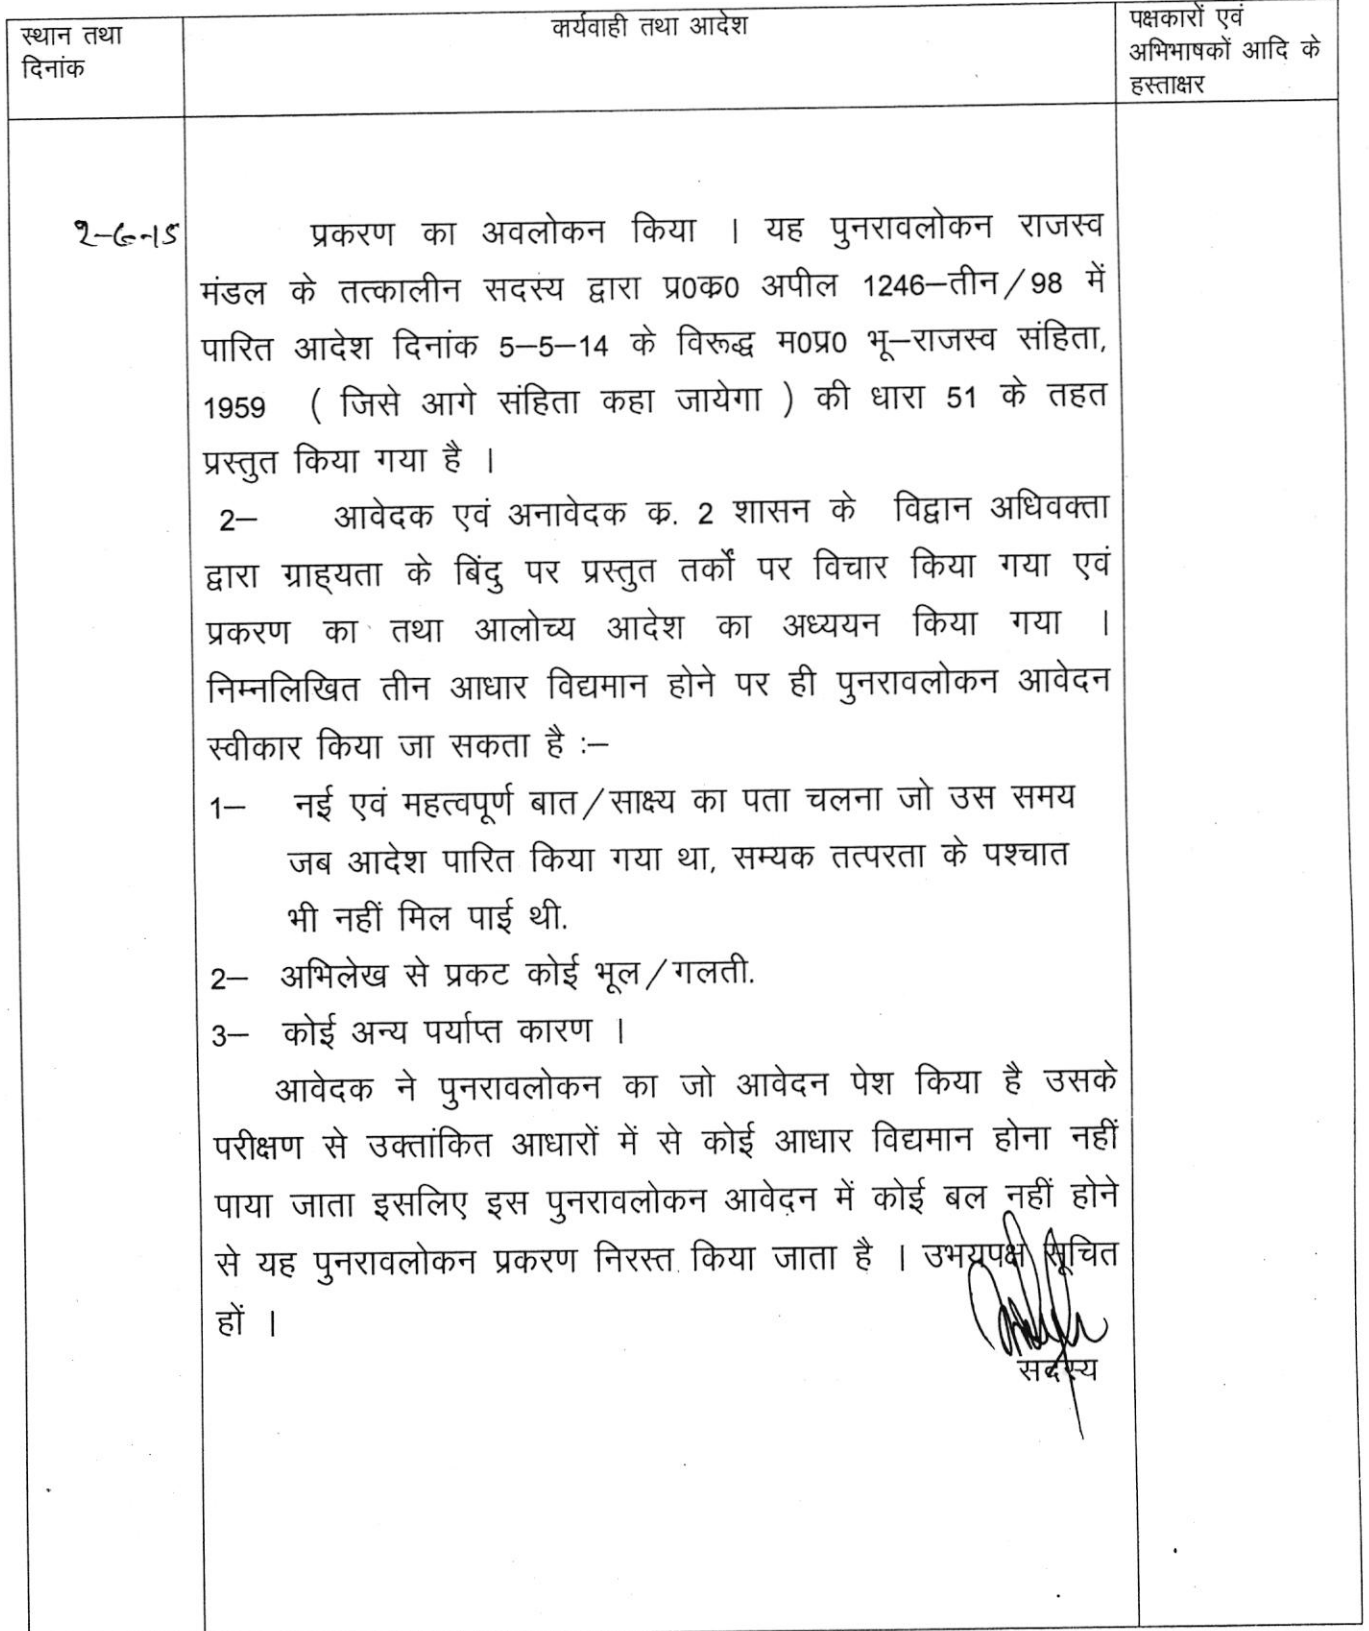 स्थान तथा
दिनांक
कार्यवाही तथा आदेश
पक्षकारों एवं
अभिभाषकों आदि के
हस्ताक्षर
प्रकरण का अवलोकन किया । यह पुनरावलोकन राजस्व
मंडल के तत्कालीन सदस्य द्वारा प्र0क्र0 अपील 1246–तीन/98 में
पारित आदेश दिनांक 5–5–14 के विरूद्ध म0प्र0 भू–राजस्व संहिता,
1959 ( जिसे आगे संहिता कहा जायेगा ) की धारा 51 के तहत
प्रस्तुत किया गया है ।
2– आवेदक एवं अनावेदक क्र. 2 शासन के विद्वान अधिवक्ता
द्वारा ग्राह्यता के बिंदु पर प्रस्तुत तर्कों पर विचार किया गया एवं
प्रकरण का तथा आलोच्य आदेश का अध्ययन किया गया ।
निम्नलिखित तीन आधार विद्यमान होने पर ही पुनरावलोकन आवेदन
स्वीकार किया जा सकता है :–
1– नई एवं महत्वपूर्ण बात/साक्ष्य का पता चलना जो उस समय
जब आदेश पारित किया गया था, सम्यक तत्परता के पश्चात
भी नहीं मिल पाई थी.
2– अभिलेख से प्रकट कोई भूल/गलती.
3– कोई अन्य पर्याप्त कारण ।
आवेदक ने पुनरावलोकन का जो आवेदन पेश किया है उसके
परीक्षण से उक्तांकित आधारों में से कोई आधार विद्यमान होना नहीं
पाया जाता इसलिए इस पुनरावलोकन आवेदन में कोई बल नहीं होने
से यह पुनरावलोकन प्रकरण निरस्त किया जाता है । उभयपक्ष सूचित
हों ।
सदस्य